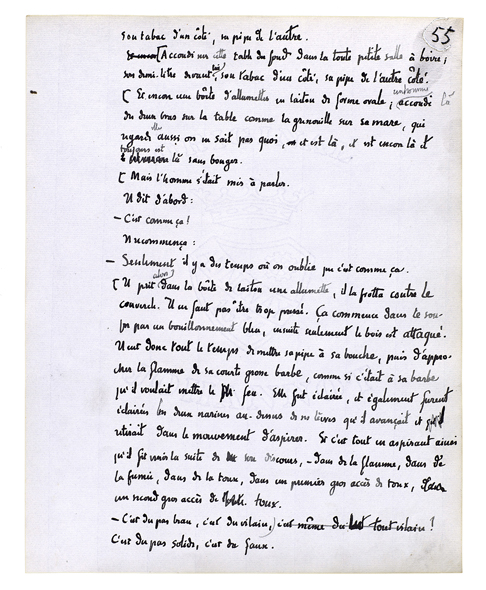 55
son tabac d'un côté, sa pipe de l'autre.
[Accoudé sur cette table du fond dans la toute petite salle à boire,
son demi-litre devant lui, son tabac d'un côté, sa pipe de l'autre côté.
[Et encore une boîte d'allumettes en laiton de forme ovale, accoudé là
des deux bras sur la table comme la grenouille sur sa mare, qui
regarde elle aussi on ne sait pas quoi, et est là, est encore là et
toujours est là sans bouger.
[Mais l'homme s'était mis à parler.
Il dit d'abord :
– C'est comme ça !
Il recommença :
– Seulement il y a des temps où on oublie que c'est comme ça.
[Il prit alors dans la boîte de laiton une allumette, il la frotta contre le
couvercle. Il ne faut pas être trop pressé. Ça commence dans le sou-
fre par un bouillonnement bleu, ensuite seulement le bois est attaqué.
Il eut donc tout le temps de mettre sa pipe à sa bouche, puis d'appro-
cher la flamme de sa courte grosse barbe, comme si c'était à sa barbe
qu'il voulait mettre le feu. Elle fut éclairée, et également furent
éclairées les deux narines au-dessus de ses lèvres qu'il avançait et
retirait dans le mouvement d'aspirer. Et c'est tout en aspirant ainsi
qu'il fit venir la suite de son discours, – dans de la flamme, dans de
la fumée, dans de la toux, dans un premier gros accès de toux, dans
un second gros accès de toux.
– C'est du pas beau, c'est du vilain, c'est même du tout vilain !
C'est du pas solide, c'est du faux.